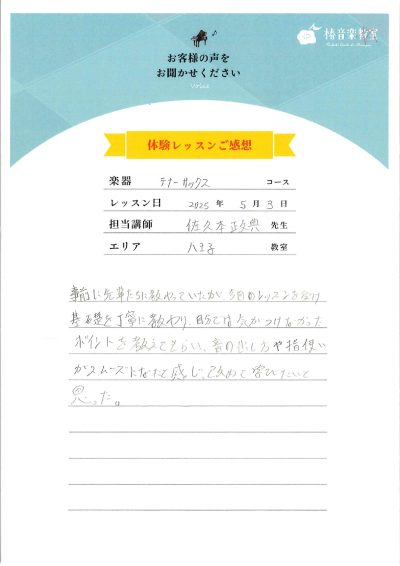 椿音楽教室
お客様の声を
お聞かせください
Voice
体験レッスンご感想
楽器 テナーサックス コース
レッスン日 2025 年 5 月 3 日
担当講師 佐久本政典 先生
エリア 八王子 教室
事前に先輩たちに教わっていたが、今日のレッスンを受け
基礎を丁寧に教わり、自分では気がつけなかった
ポイントを教えてもらい、音の出し方や指使い
がスムーズになったと感じ、改めて学びたいと
思った。